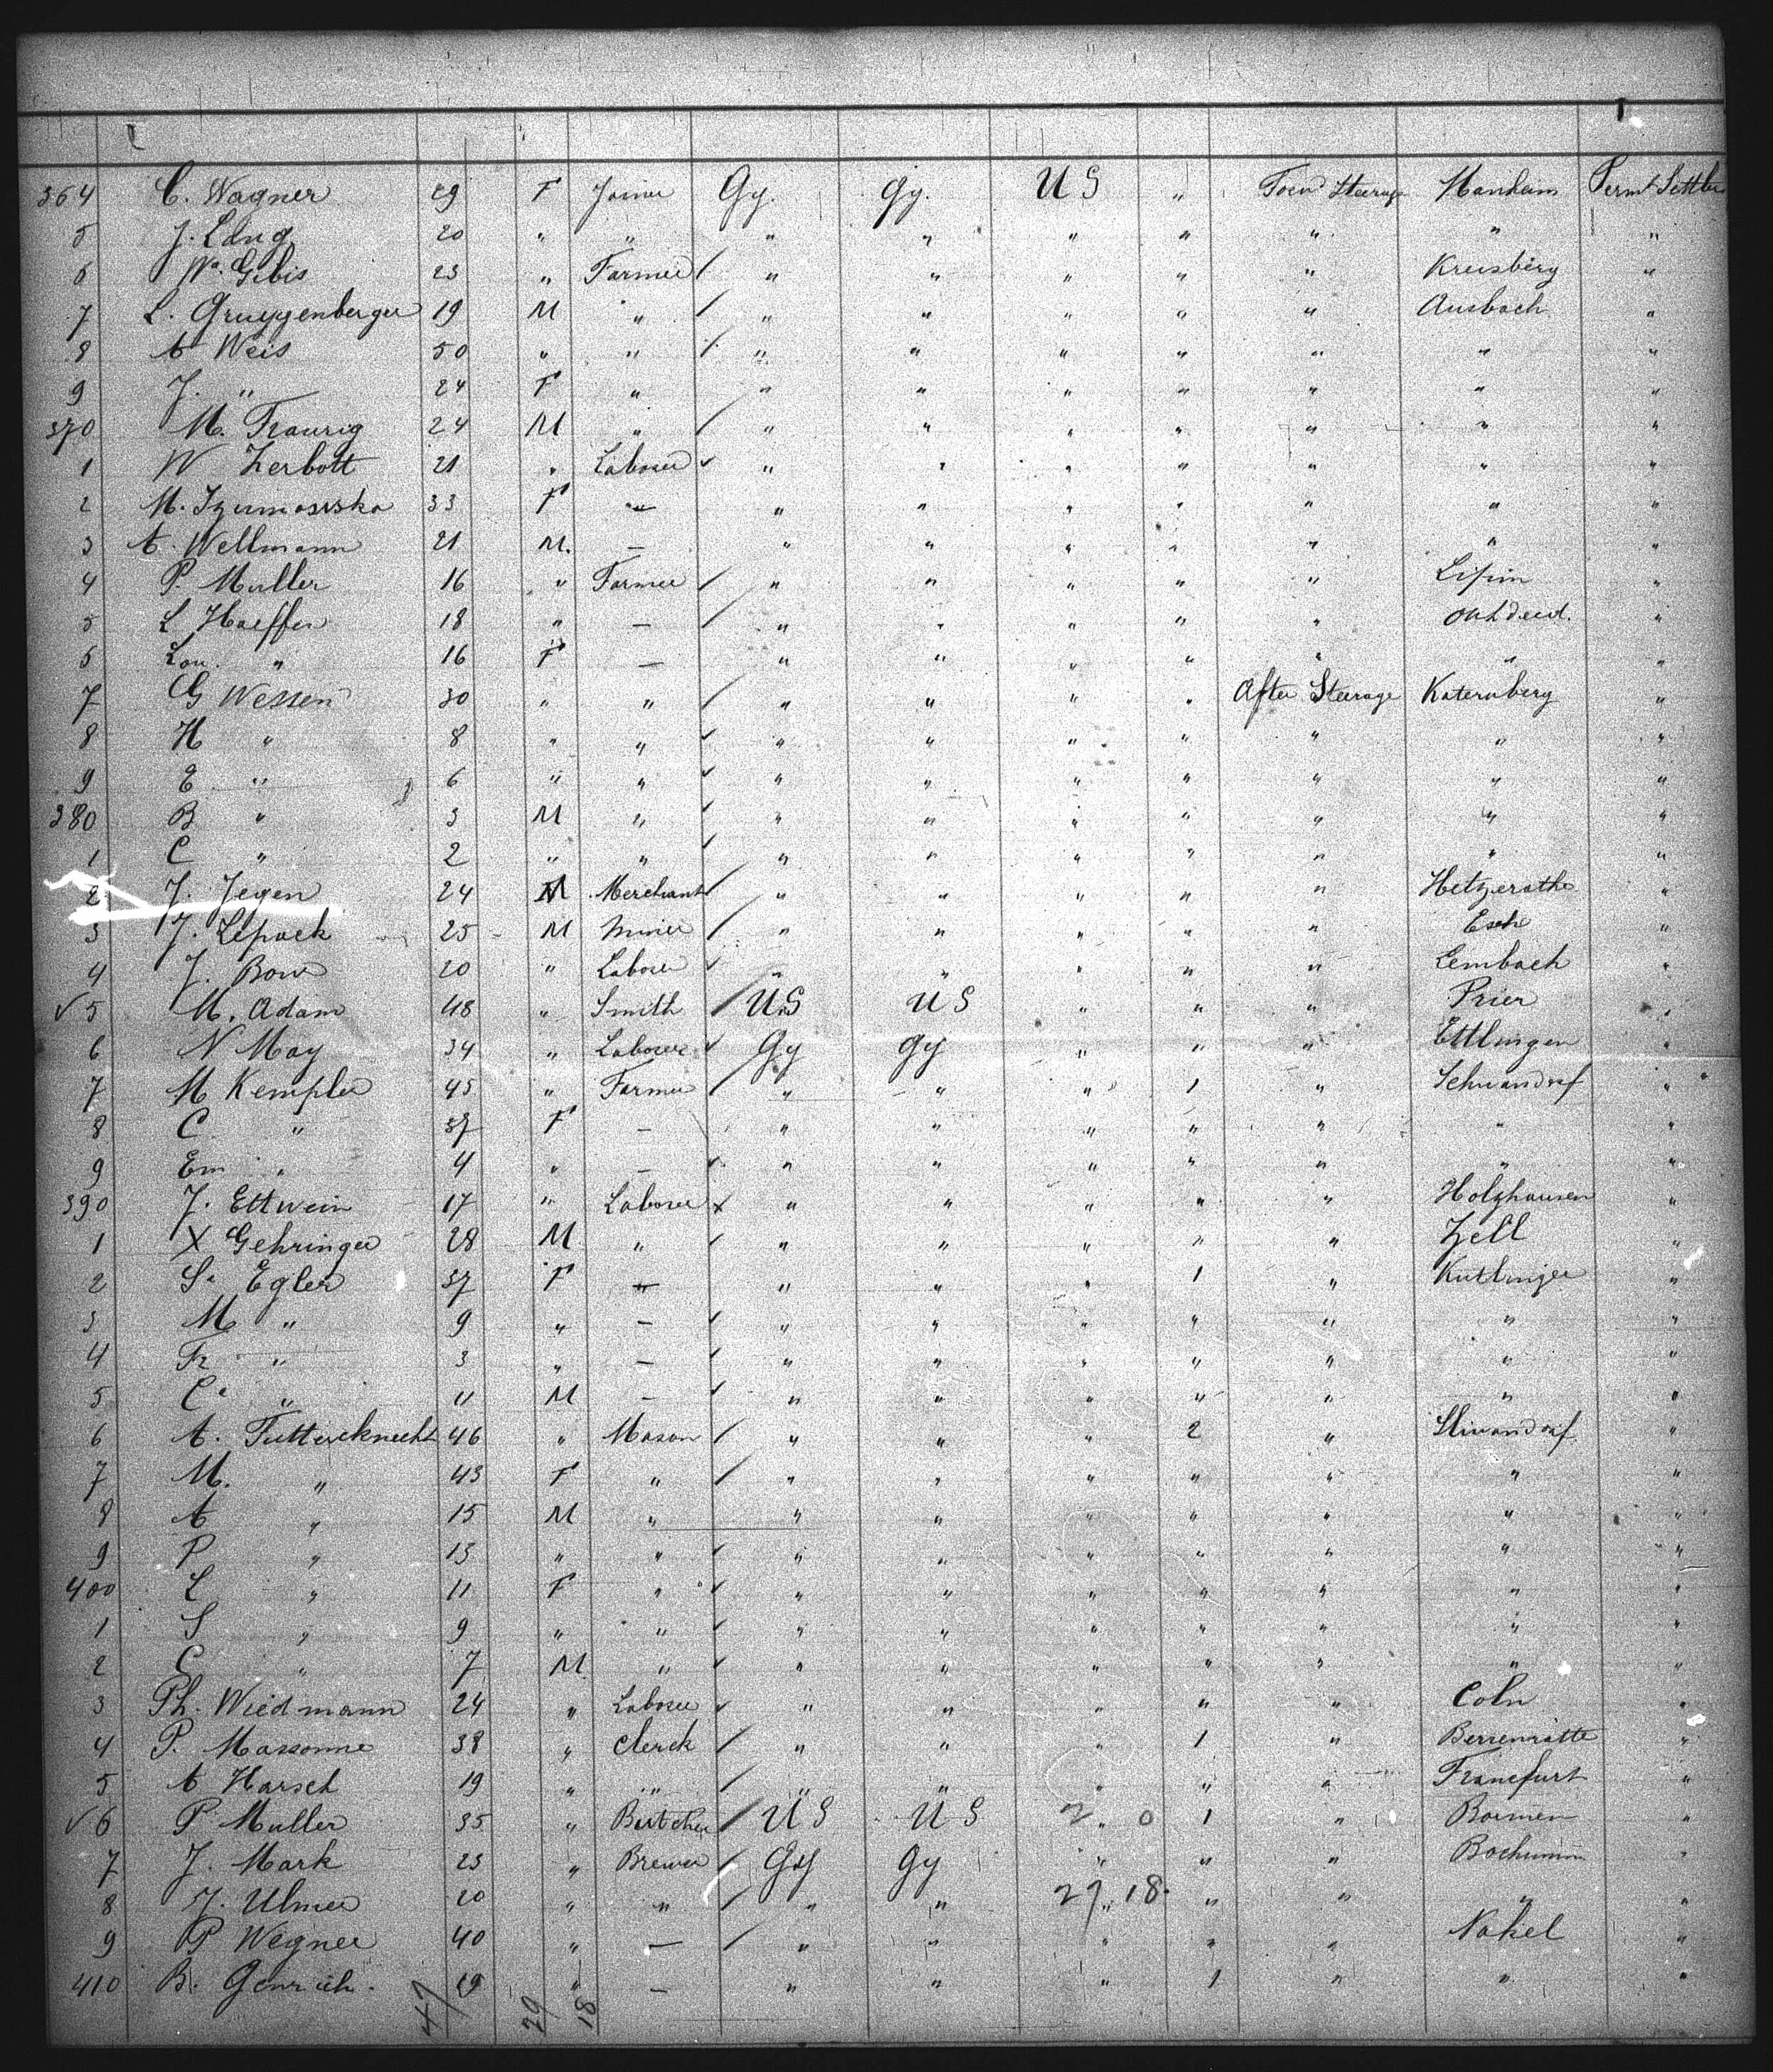 364 C. Wagner 29 F Joiner Gy. Gy. U S " Forw Steerage Manham Permt Settler
5 J. Lang 20 " " " " " " " " "
6 Wa. Gibis 23 " Farmer / " " " " " Kreisberg "
7 L. Gruggenberger 19 M " / " " " " " Ansbach "
8 A Weis 50 " " / " " " " " " "
9 J. " 24 F " " " " " " " "
370 M. Traurig 24 M " / " " " " " " "
1 W Zerbott 21 " Laborer ✓ " " " " " " "
2 M. Izumosrska 33 F — " " " " " " "
3 A. Wellmann 21 M. — " " " " " " "
4 P. Muller 16 " Farmer / " " " " " Lipin "
5 L Haeffen 18 " — / " " " " " "
5 Lou. " 16 F — " " " " " " "
7 G Wessen 30 " " / " " " " After Steerage Katernberg "
8 H " 8 " " ✓ " " " " " " "
9 E " 6 " " ✓ " " " " " " "
380 B " 3 M " ✓ " " " " " " "
1 C " 2 " " ✓ " " " " " " "
2 J. Jegen 24 M Merchant / " " " " " Hetzerothe "
3 J. Lepack 25 M Miner / " " " " " Esch "
4 J. Bow 20 " Laborer ✓ " " " " " Lembach "
✓ 5 M. Adam 48 " Smith / U.S U S " " " Prier "
6 N May 34 " Laborer ✓ Gy Gy " " " Ettlingen "
7 M Kempler 45 " Farmer / " " " 1 " Schwandorf "
8 C. " 37 F — " " " " " " "
9 Em " 4 " — ✓ " " " " " " "
390 J. Ettwein 17 " Laborer x " " " " " Holzhausen "
1 X Gehringer 28 M " / " " " " " Zell "
2 S. Egler 37 F — " " " 1 " Kuttlinger "
3 M " 9 " — ✓ " " " " " " "
4 Fr " 3 " — ✓ " " " " " " "
5 C. " 11 M — ✓ " " " " " " "
6 A. Futterknecht 46 " Mason / " " " 2 " "
7 M. " 43 F " / " " " " " " "
8 A " 15 M " " " " " " " "
9 P " 13 " " ✓ " " " " " " "
400 L " 11 F " ✓ " " " " " " "
1 S " 9 " " ✓ " " " " " " "
2 C " 7 M. " ✓ " " " " " " "
3 Ph. Wiedmann 24 " Laborer ✓ " " " " " Coln "
4 P. Massonne 38 " Clerck / " " " 1 " Berrenratte "
5 A Harsch 19 " " / " " " " " Francfurt "
✓ 6 P. Muller 35 " Butcher / U S U S 2 " 0 1 " Barmen "
7 J. Mark 23 " Brewer / Gy Gy " " " Bochumm "
8 J. Ulmer 20 " " / " " 29 " 18. " " " "
9 P Wegner 40 " — / " " " " " Nakel "
410 B. Genrich. 19 " — " " " 1 " " "
47 29 18